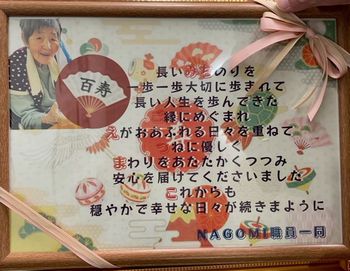 百寿
長いみちのりを
一歩一歩大切に歩まれて
長い人生を歩んできた
縁にめぐまれ
えがおあふれる日々を重ねて
つねに優しく
まわりをあたたかくつつみ
安心を届けてくださいました
これからも
穏やかで幸せな日々が続きまように
NAGOMI職員一同